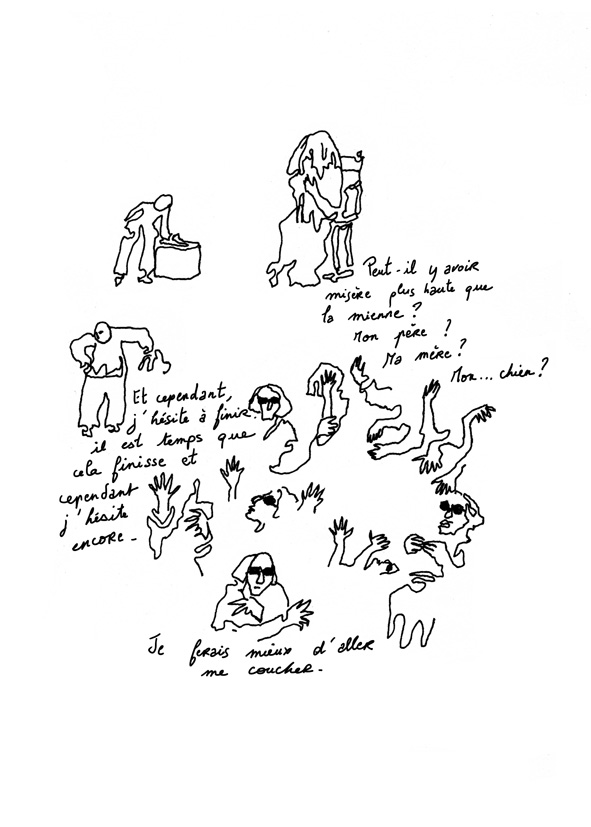 Peut-il y avoir
misère plus haute que
la mienne ?
Mon père ?
Ma mère ?
Mon... chien ?
Et cependant,
j'hésite à finir.
il est temps que
cela finisse et
cependant
j'hésite
encore -
Je ferais mieux d'aller
me coucher -